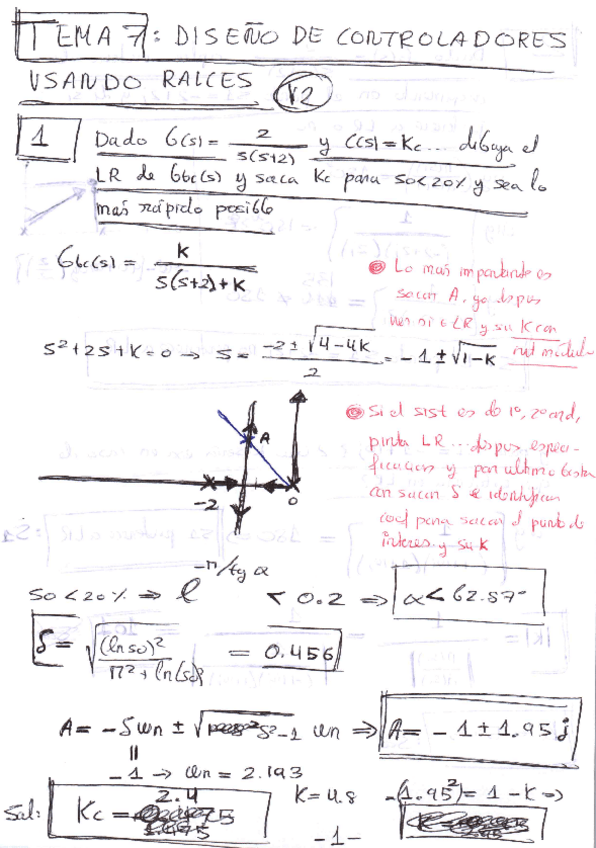 TEMA 7: DISEÑO DE CONTROLADORES
USANDO RAICES V2
1 Dado G(s) = 2/s(s+2) y C(s) = Kc... dibuja el
LR de Gbc(s) y saca Kc para SO<20% y sea lo
mas rápido posible
Gbc(s) = K/s(s+2)+K
Lo mas importante es
sacar A, ya despues
LR y su K con
s²+2s+K=0 → s = -2±√4-4K/2 = -1±√1-K
A
-2
0
Si el sist es de 1º, 2º ord,
pinta LR... despues especi-
ficaciones y por ultimo basta
con sacar S e identificar
coef para sacar el punto de
interes y su K
SO<20% ⇒ e^-π/tg α < 0.2 ⇒ α<62.87°
δ = √(ln so)²/π²+ln(so)² = 0.456
A = -δωn ± √δ²-1 ωn ⇒ A = -1±1.95j
-1 → ωn = 2.193
Sol: Kc = 2.4
K=4.8
-(1.95²) = 1-K ⇒
-1-